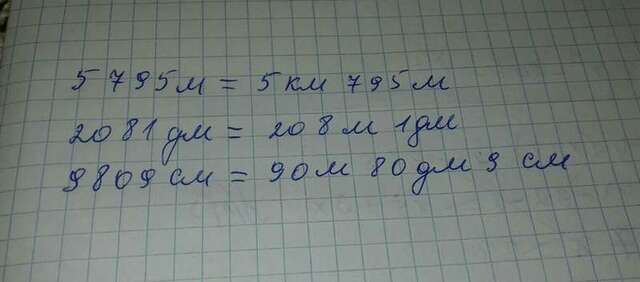 5 795 м = 5 км 795 м
2081 дм = 208 м 1 дм
9809 см = 90 м 80 дм 9 см